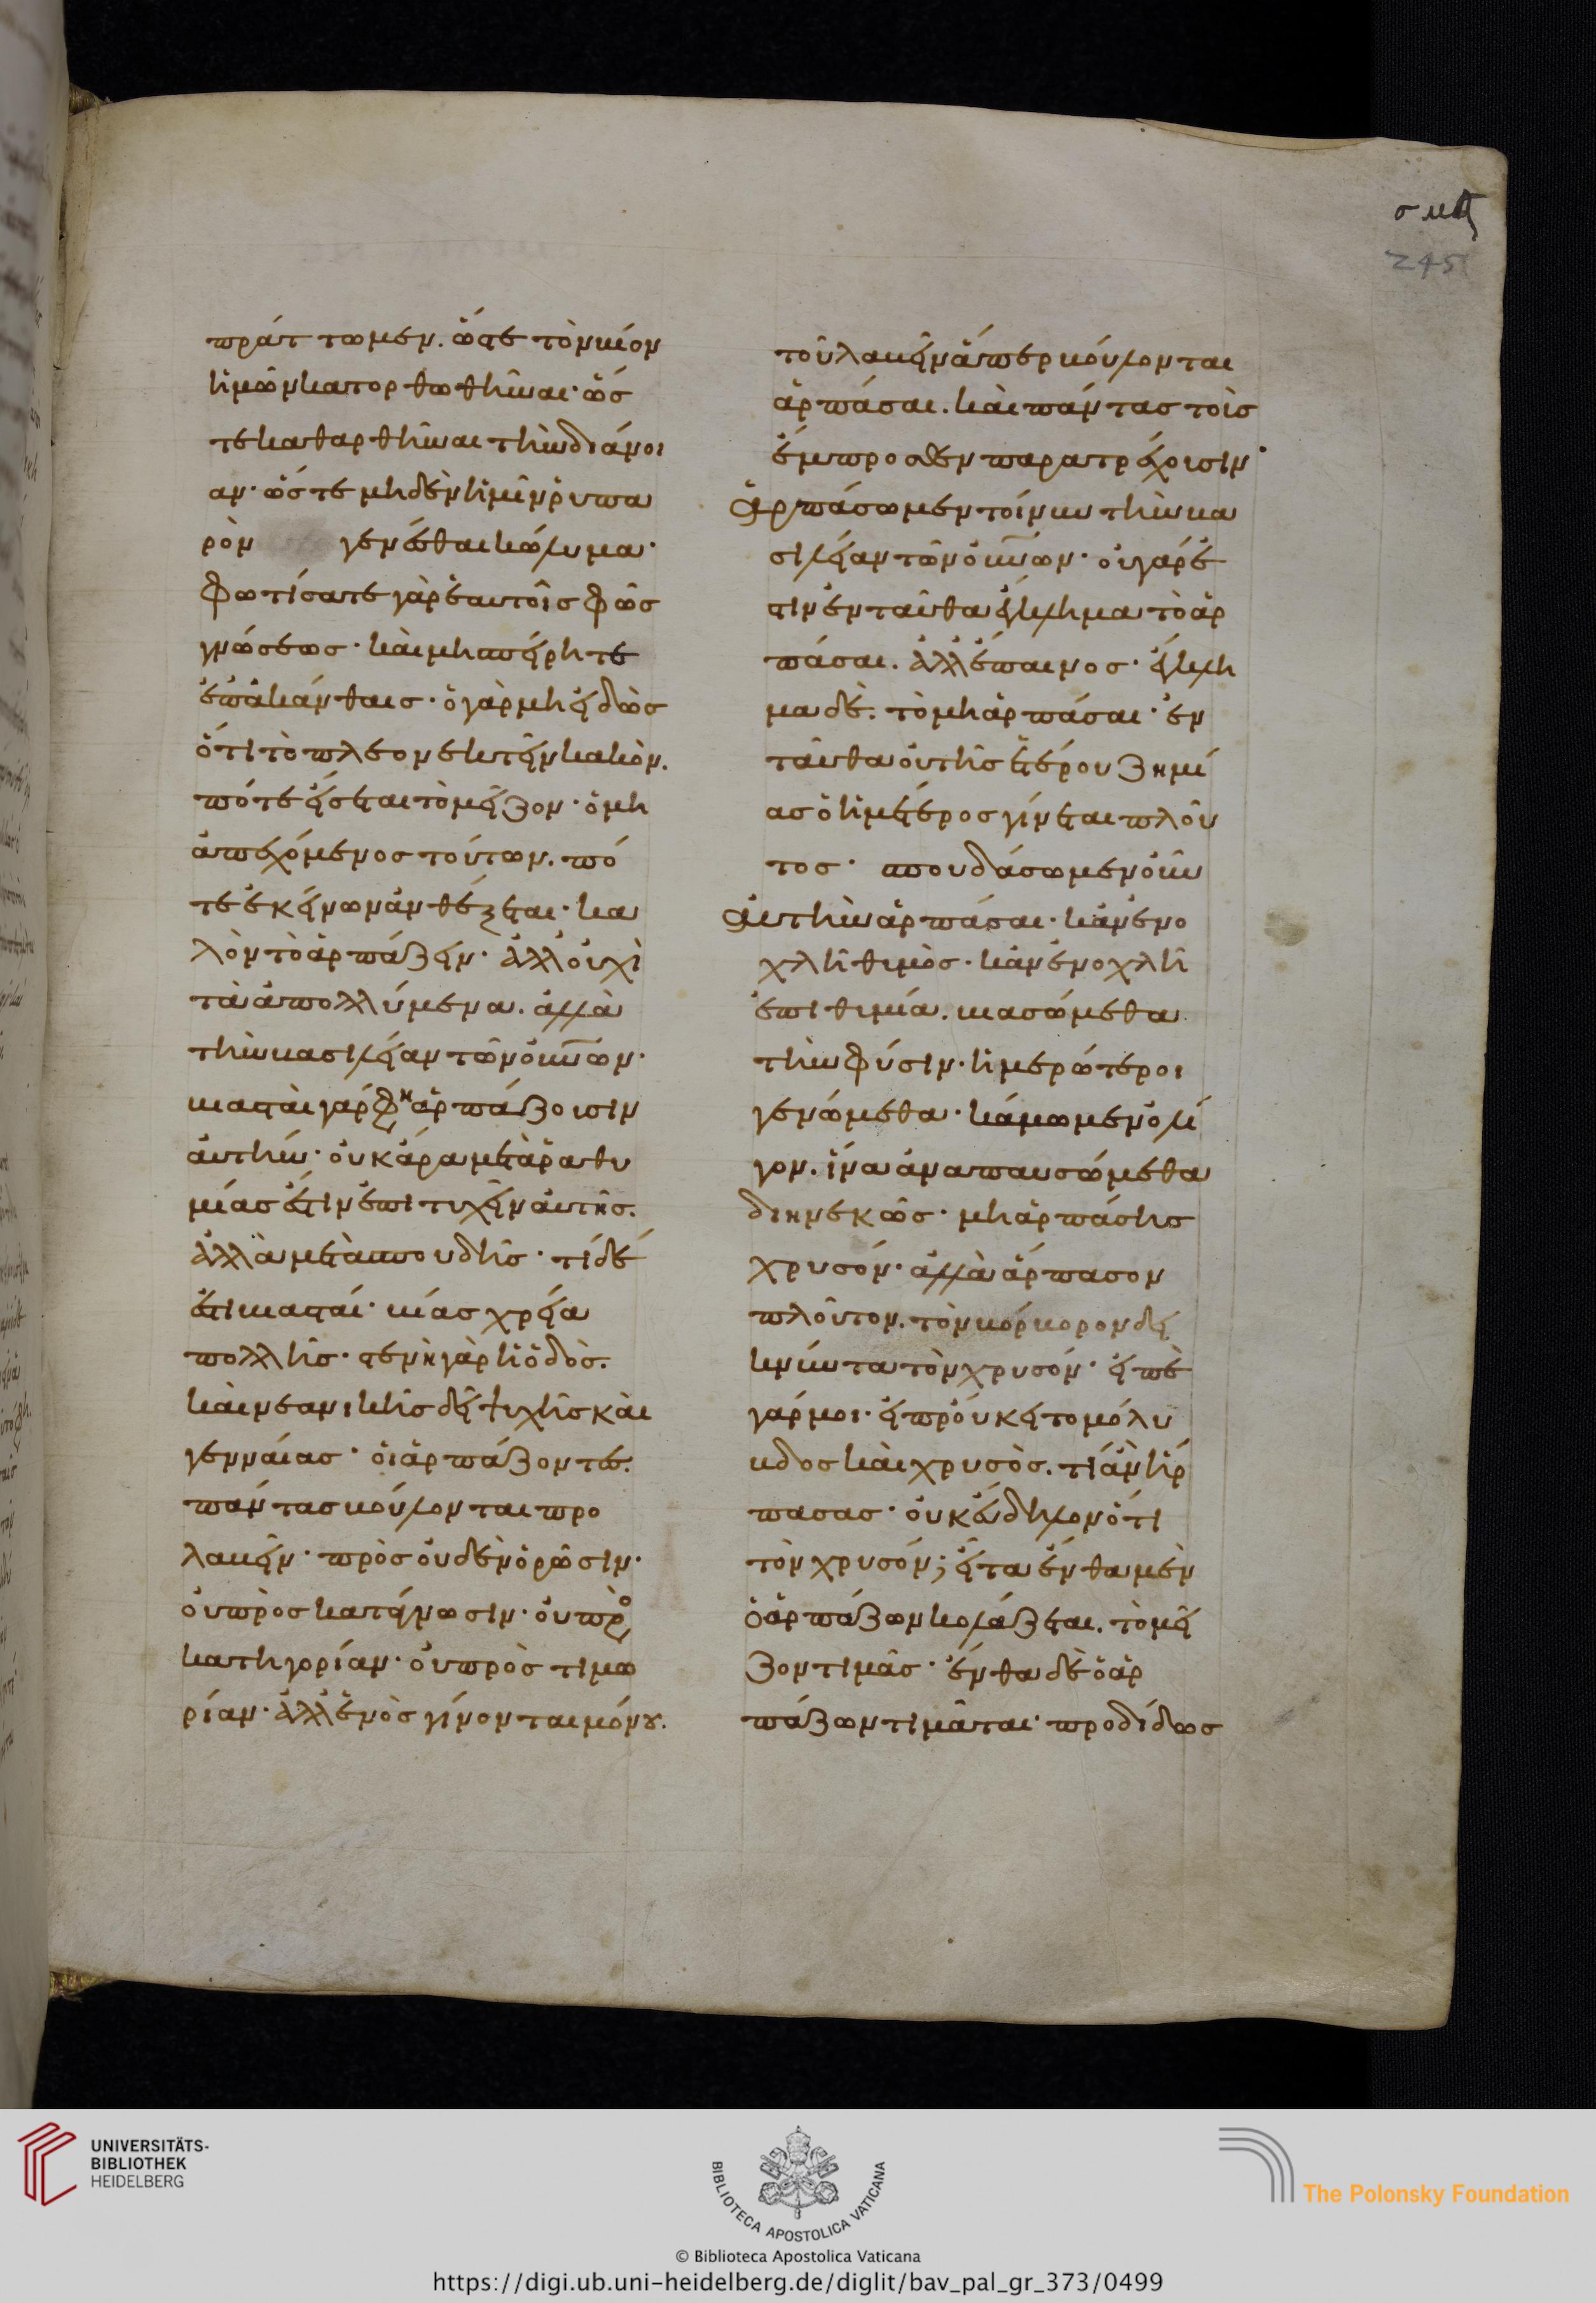 σμϛ
245
πράττωμεν. ὥστε τὸν βίον
ἡμῶν κατορθωθῆναι· ὥσ
τε καθαρθῆναι τὴν διάνοι
αν· ὥστε μηδὲν ἡμῖν ῥυπα
ρὸν γενέσθαι κώλυμα·
φωτίσατε γὰρ ἑαυτοῖς φῶς
γνώσεως· καὶ μὴ σπείρητε
ἐπ' ἀκάνθαις· ὁ γὰρ μὴ εἰδὼς
ὅτι τὸ πλεονεκτεῖν κακὸν.
πότε εἴσεται τὸ μεῖζον· ὁ μὴ
ἀπεχόμενος τούτων. πό
τε ἐκείνων ἀνθέξεται· κα
λὸν τὸ ἁρπάζειν· ἀλλ' οὐχὶ
τὰ ἀπολλύμενα. ἀλλὰ
τὴν βασιλείαν τῶν οὐνῶν·
βιασταὶ γάρ φη ἁρπάζουσιν
αὐτήν· οὐκ ἄρα μετὰ ῥαθυ
μίας ἔστιν ἐπιτυχεῖν αὐτῆς.
ἀλλὰ μετὰ σπουδῆς· τί δέ
ἐστι βιασταί· βίας χρεία
πολλῆς· στενὴ γὰρ ἡ ὁδὸς.
καὶ νεανικῆς δεῖ ψυχῆς καὶ
γενναίας· οἱ ἁρπάζοντες.
πάντας βούλονται προ
λαβεῖν· πρὸς οὐδὲν ὁρῶσιν·
οὐ πρὸς κατάγνωσιν· οὐ πρὸ
κατηγορίαν· οὐ πρὸς τιμω
ρίαν· ἀλλ' ἑνὸς γίνονται μόνου.
τοῦ λαβεῖν ἅπερ βούλονται
ἁρπάσαι. καὶ πάντας τοὺς
ἔμπροσθεν παρατρέχουσιν·
Ἁρπάσωμεν τοίνυν τὴν βα
σιλείαν τῶν οὐνῶν· οὐ γάρ ἐ
στιν ἐνταῦθα ἔγκλημα τὸ ἁρ
πάσαι. ἀλλ' ἔπαινος· ἔγκλη
μα δὲ. τὸ μὴ ἁρπάσαι· ἐν
ταῦθα οὐ τῆς ἑτέρου ζημί
ας ὁ ἡμέτερος γίνεται πλοῦ
τος· σπουδάσωμεν οὖν
αὐτὴν ἁρπάσαι· κἂν ἐνο
χλῆ θυμὸς· κἂν ἐνοχλῆ
ἐπιθυμία. βιασώμεθα
τὴν φύσιν· ἡμερώτεροι
γενώμεθα· κάμωμεν ὀλί
γον. ἵνα ἀναπαυσώμεθα
διηνεκῶς· μὴ ἁρπάσης
χρυσόν· ἀλλὰ ἅρπασον
πλοῦτον. τὸν βόρβορον δει
κνύντα τὸν χρυσόν· εἰπὲ
γάρ μοι· εἰ προὔκειτο μόλυ
βδος καὶ χρυσὸς. τί ἂν ἥρ
πασας· οὐκ εὔδηλον ὅτι
τὸν χρυσόν; εἶτα ἔνθα μὲν
ὁ ἁρπάζων κολάζεται. τὸ μεῖ
ζον τιμᾶς· ἔνθα δὲ ὁ ἁρ
πάζων τιμᾶται· προδίδως
UNIVERSITÄTS-
BIBLIOTHEK
HEIDELBERG
BIBLIOTECA APOSTOLICA VATICANA
The Polonsky Foundation
© Biblioteca Apostolica Vaticana
https://digi.ub.uni-heidelberg.de/diglit/bav_pal_gr_373/0499